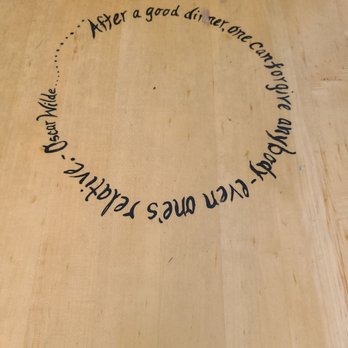 After a good dinner, one can forgive anybody - even one's relative. - Oscar Wilde............